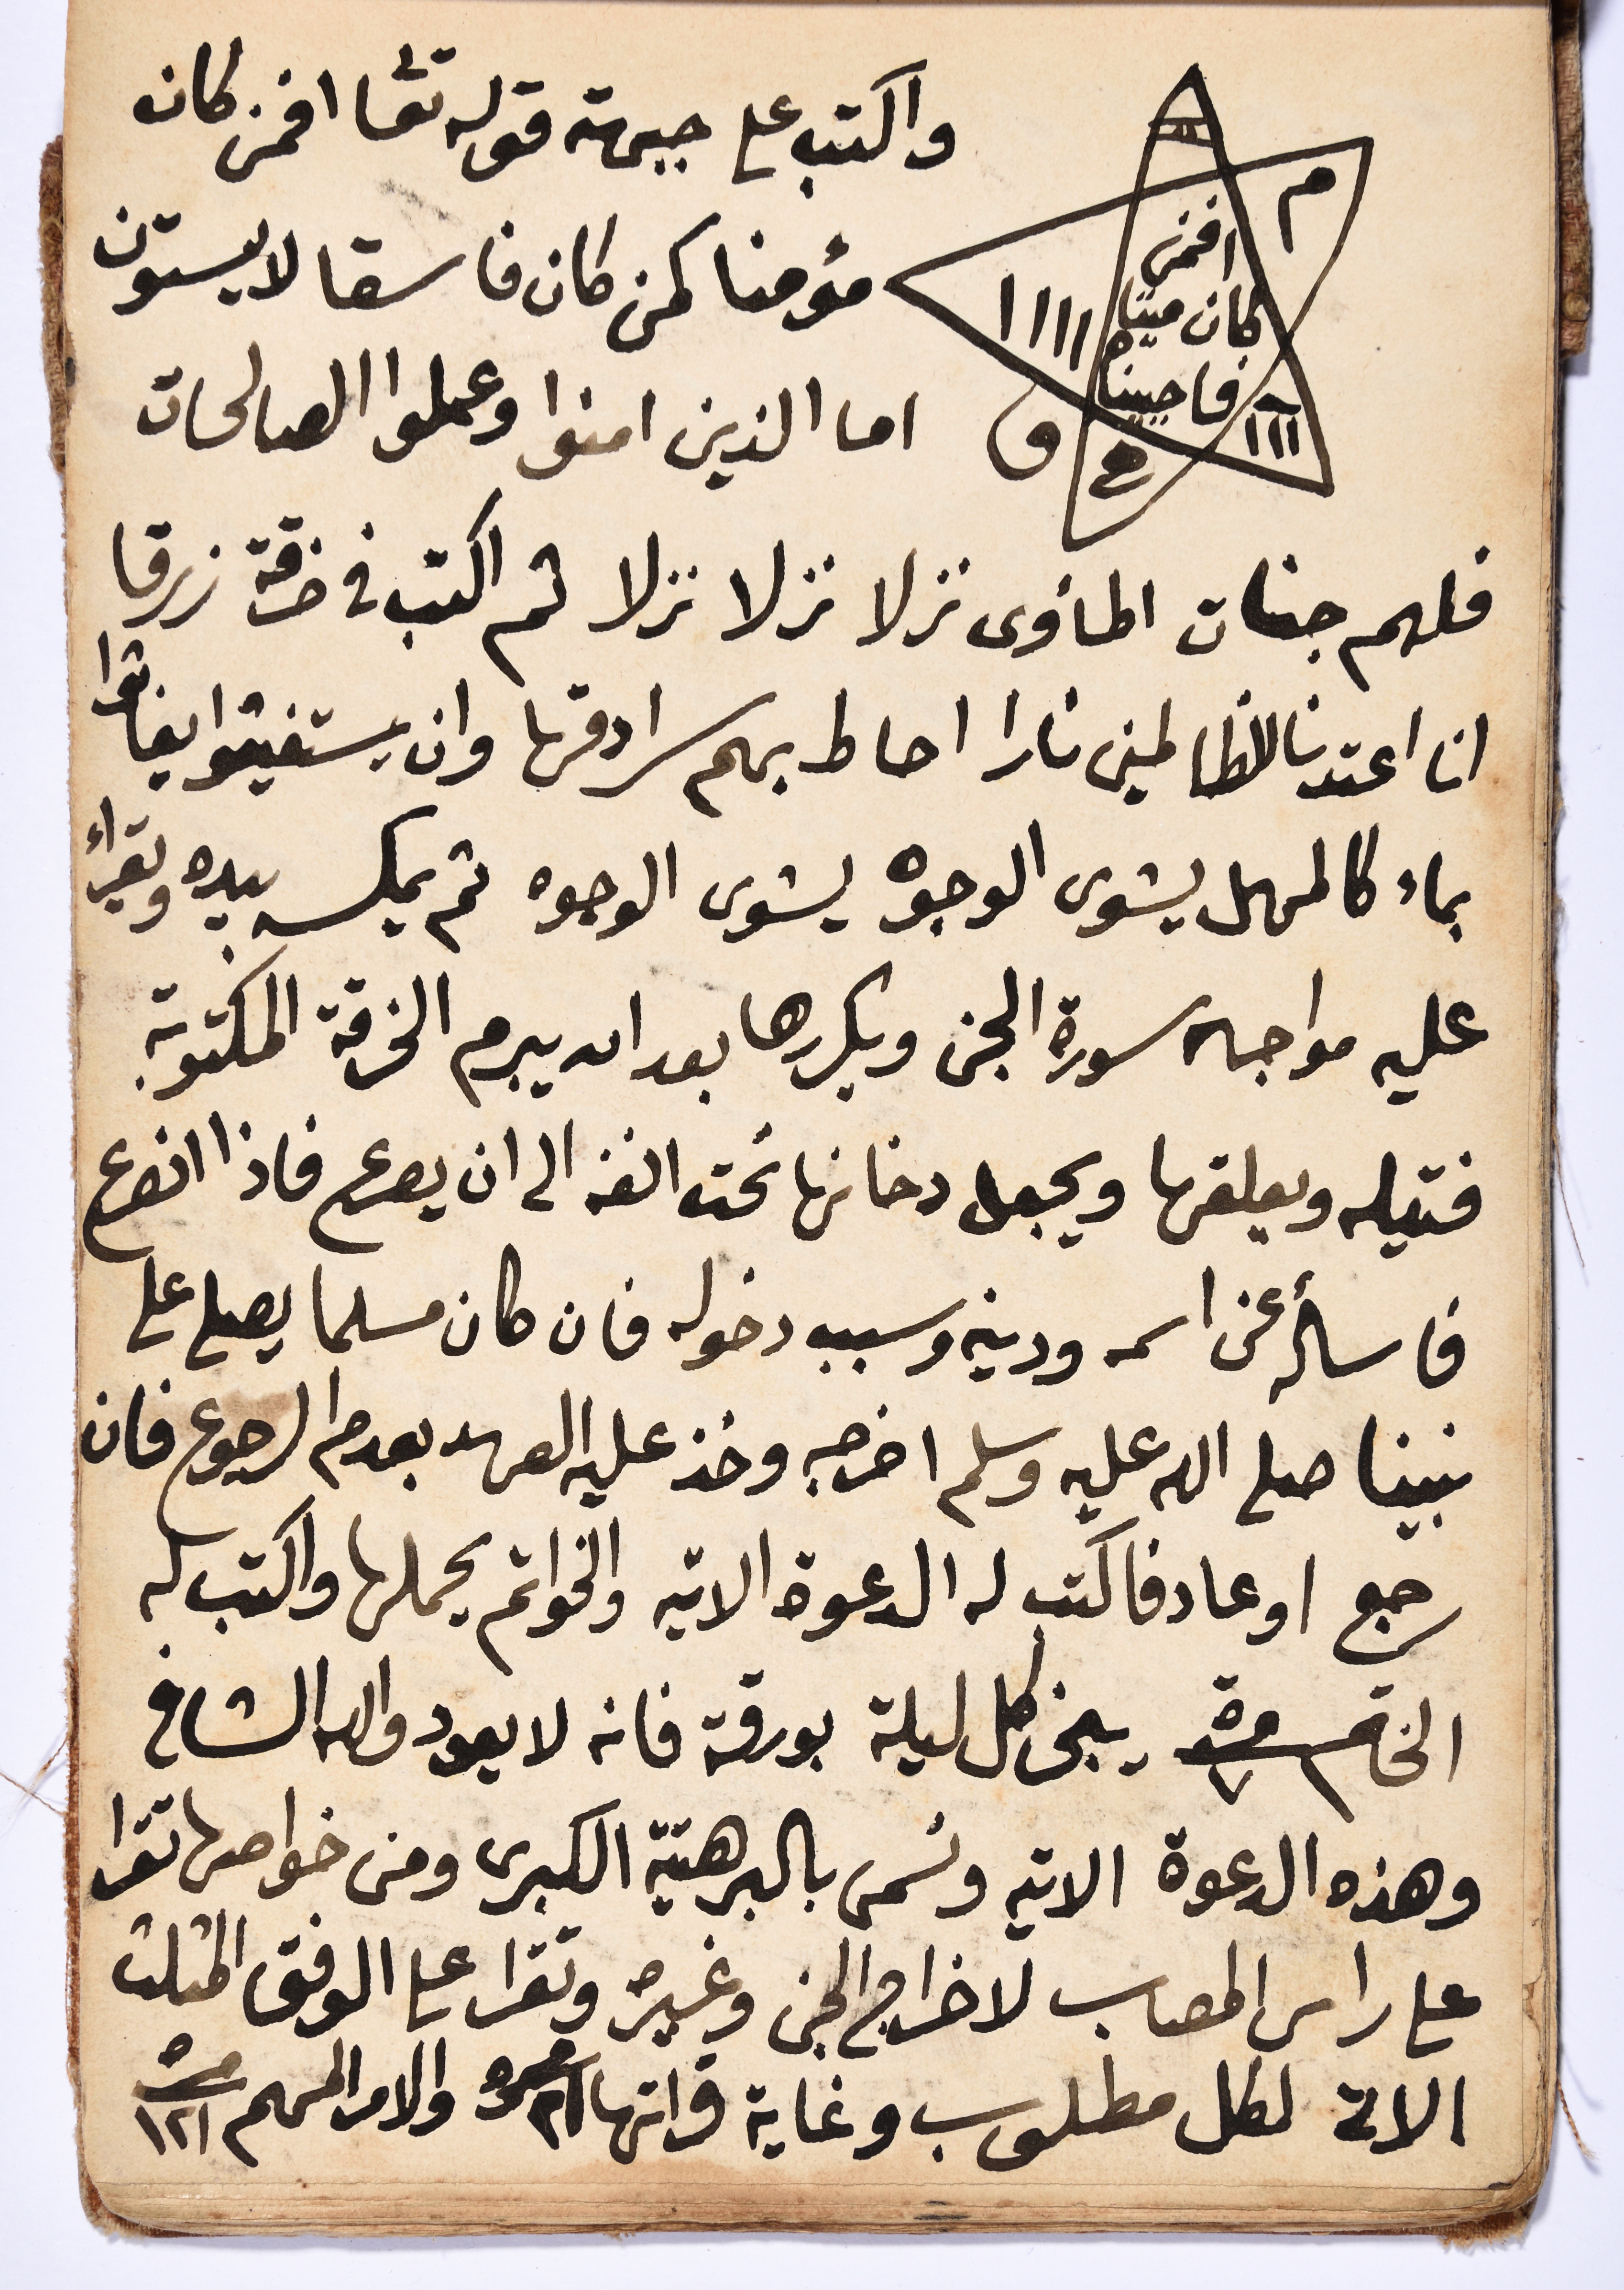 واكتب على جبهته قوله تعا افمن كان
مؤمنا كمن كان فاسقا لا يستون
اما الذين امنوا وعملوا الصالحات
م
افمن
كان ميتا
فاحييناه
١١١١
١١١
فلهم جنات المأوى نزلا نزلا نزلا ثم اكتب في خرقة زرقا
انا اعتدنا للظالمين نارا احاط بهم سرادقها وان يستغيثوا يغاثوا
بماء كالمهل يشوى الوجوه يشوى الوجوه ثم يمكسه بيده وتقراء
عليه مواجهه سورة الجن ويكررها بعد ان يبرم الخرقة المكتوبة
فتيله ويعلقها ويجعل دخانها تحت انفه الى ان يصرع فاذا انصرع
فاسأله عن اسمه ودينه وسبب دخوله فان كان مسلما يصلى على
نبينا صلى الله عليه وسلم اخرجه وخذ عليه العهد بعدم الرجوع فان
رجع او عاد فاكتب له الدعوة الاتيه والخواتم يحملها واكتب له
الخاتم مرة ٧ يبخر كل ليلة بورقة فانه لا يعود والله الشافي
وهذه الدعوة الاتيه وتسمى بالبرهتية الكبرى ومن خواصها تقرا
على راس المصاب لاخراج الجن وغيره وتقرا على الوفق المثلث
الاتى لكل مطلوب وغاية قراتها ٢١ مره والامر المهم مره ١٢١